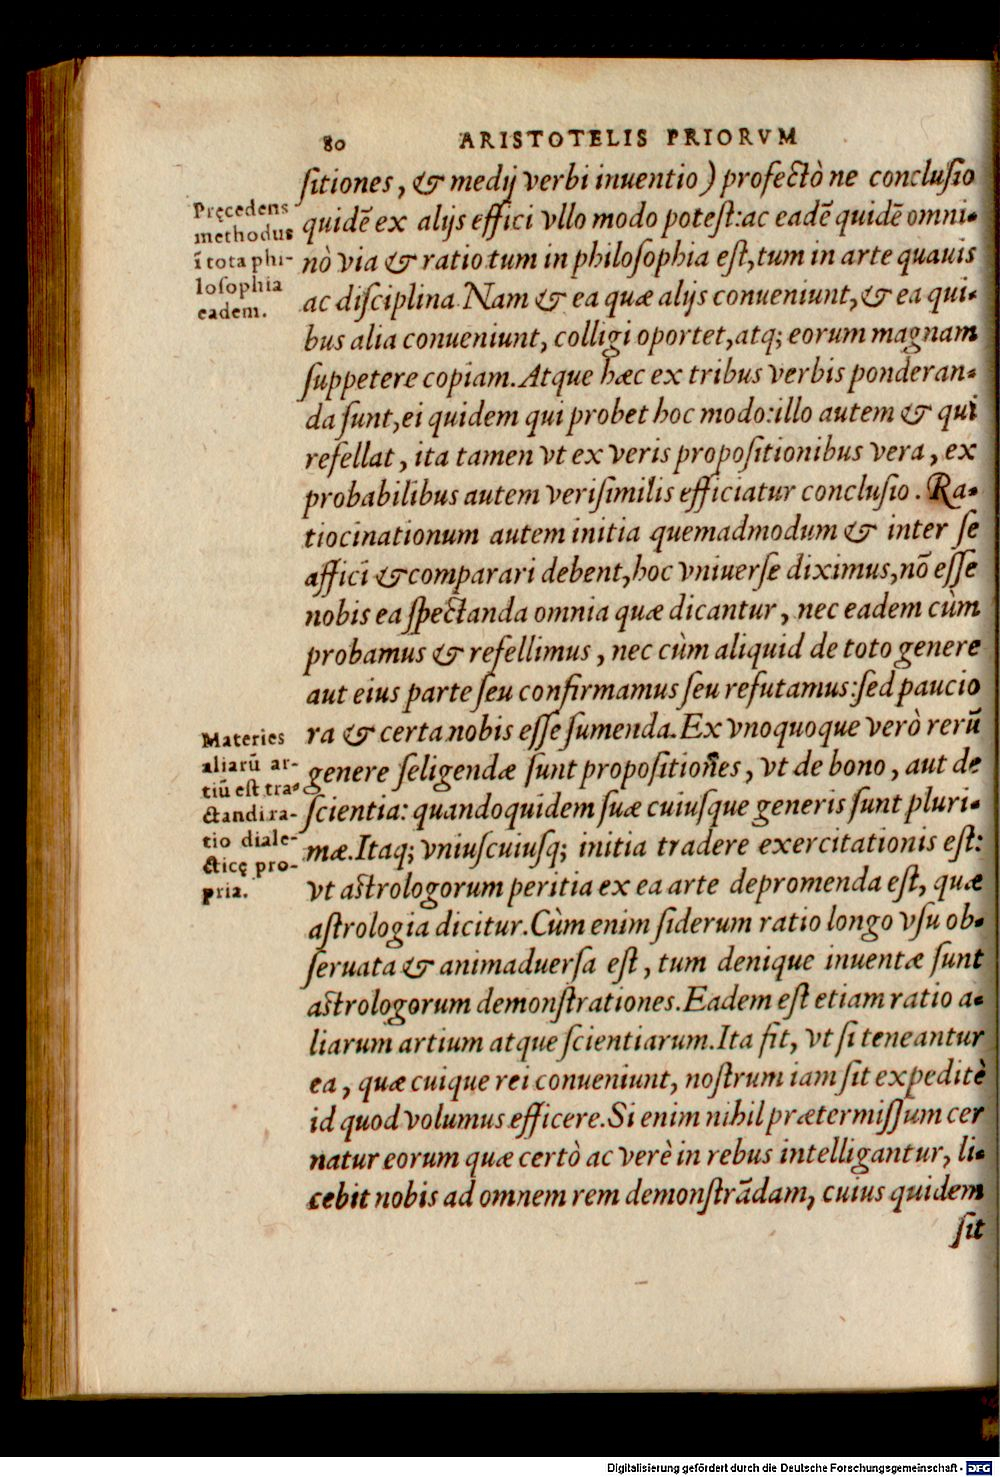 80 ARISTOTELIS PRIORVM
ſitiones, & medij verbi inuentio) profectò ne concluſio
quidē ex alijs effici vllo modo poteſt: ac eadē quidē omni-
nò via & ratio tum in philoſophia eſt, tum in arte quauis
ac diſciplina. Nam & ea quæ alijs conueniunt, & ea qui-
bus alia conueniunt, colligi oportet, atq; eorum magnam
ſuppetere copiam. Atque hæc ex tribus verbis ponderan-
da ſunt, ei quidem qui probet hoc modo: illo autem & qui
refellat, ita tamen vt ex veris propoſitionibus vera, ex
probabilibus autem veriſimilis efficiatur concluſio. Ra-
tiocinationum autem initia quemadmodum & inter ſe
affici & comparari debent, hoc vniuerſe diximus, nō eſſe
nobis ea ſpectanda omnia quæ dicantur, nec eadem cùm
probamus & refellimus, nec cùm aliquid de toto genere
aut eius parte ſeu confirmamus ſeu refutamus: ſed paucio
ra & certa nobis eſſe ſumenda. Ex vnoquoque verò rerū
genere ſeligendæ ſunt propoſitiones, vt de bono, aut de
ſcientia: quandoquidem ſuæ cuiuſque generis ſunt pluri-
mæ. Itaq; vniuſcuiuſq; initia tradere exercitationis eſt:
vt aſtrologorum peritia ex ea arte depromenda eſt, quæ
aſtrologia dicitur. Cùm enim ſiderum ratio longo vſu ob-
ſeruata & animaduerſa eſt, tum denique inuentæ ſunt
aſtrologorum demonſtrationes. Eadem eſt etiam ratio a-
liarum artium atque ſcientiarum. Ita fit, vt ſi teneantur
ea, quæ cuique rei conueniunt, noſtrum iam ſit expeditè
id quod volumus efficere. Si enim nihil prætermiſſum cer
natur eorum quæ certò ac verè in rebus intelligantur, li-
cebit nobis ad omnem rem demonſtrādam, cuius quidem
ſit
Pręcedens
methodus
ī tota phi-
loſophia
eadem.
Materies
aliarū ar-
tiū eſt tra-
ctandi ra-
tio diale-
cticę pro-
pria.
Digitalisierung gefördert durch die Deutsche Forschungsgemeinschaft - DFG